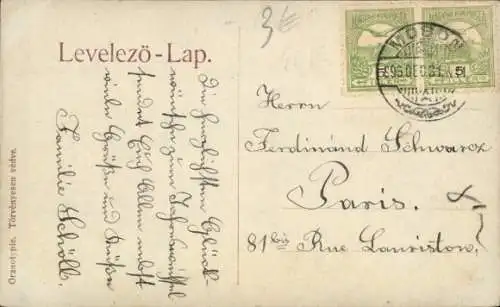 3€
Levelező-Lap.
MOSON
906 DEC. 31.
Die herzlichsten Glück-
wünsche zum Jahreswechsel
sendet Euch Allen nebst
viele Grüße und Küße
Familie Schöll.
Herrn
Ferdinánd Schwarcz
Paris.
81 bis Rue Lauriston.
Oranotypie. Törvényesen védve.